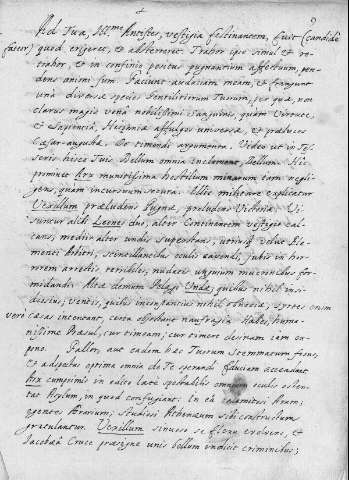 Ad Tua, Ill.me Antistes, vestigia festinantem, fuit (candidè
fateor) quod erigeret, et absterreret. Trahor ipse simul et re-
trahor, et in confinio positus pugnantium affectuum, pen-
dens animi sum. Faciunt audaciam meam, et frangunt
una diversae species Gentilitiorum Tuorum, per quae, non
clarus magis vena nobilissimi sanguinis, quam Virtute,
et Sapientia, Hispaniae affulges universae, et praeluces
Caesar-augustae. Do timendi argumenta. Video ut in Te-
seris hisce Tuis Bellum omnia inclement, Bellum. Hic
prominet Arx munitissima hostilium minarum tam negli-
gens, quam incursuum secura. Illic militare explicatur
Vexillum praeludens Pugnae, praeludens Victoriae. Vi-
suntur alibi Leones duo, alter Continentem vestigio cal-
cans, medius alter undis superstans, utriusque velut Ele-
menti Arbitri, scintillantes oculis aspiendi, jubis in hor-
rorem arrectis terribiles, nudatis unguium mucronibus for-
midandi. Alta demum Pelagi Unda; quibus nihil in-
sidiosius; ventis, quibus inconstantius nihil obnoxia, sortes enim
vero casus intentant, certa exhibent naufragia. Habes, huma-
nissime Praesul, cur timeam; cur timere desinam iam ex-
pono. Pallor, aut eadem haec Tuorum Stemmatum frons,
et adspectus optima omnia de Te sperandi fiduciam accendunt.
Arx cumprimis in edito late spectabilis omnium oculis osten-
tat Asylum, in quod confugiant. In ea calamitosi Aram;
egentes Aerarium; studiosi Athenaeum sibi constructum
gratulantur. Vexillum sinuoso se flexu evolvens, et
Jacobaea Cruce praesigne unis bellum indicit criminibus;